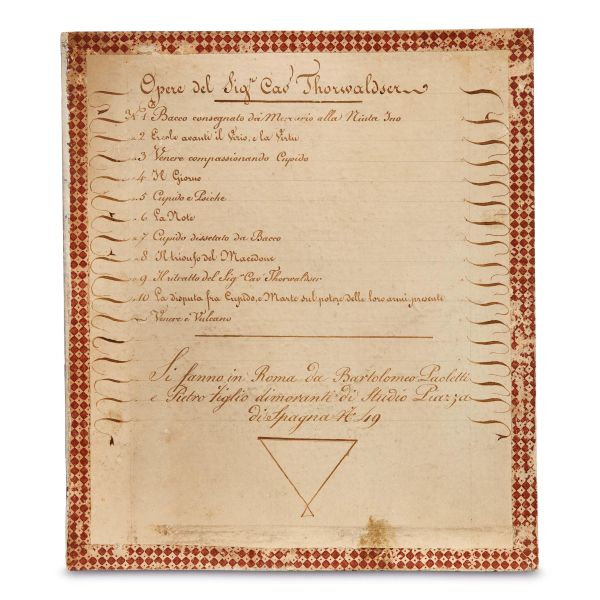 Opere del Sigr. Cavr. Thorwaldsen
No. 1 Bacco consegnato da Mercurio alla Ninfa Ino
2 Ercole avanti il Vizio, e la Virtu
3 Venere compassionando Cupido
4 Il Giorno
5 Cupido e Psiche
6 La Note
7 Cupido dissetato da Bacco
8 Il triunfo del Macedone
9 Il ritratto del Sigr. Cavr. Thorwaldsen
10 La disputa fra Cupido, e Marte sul potere delle loro armi, presente
Venere e Vulcano
Si fanno in Roma da Bartolomeo Paoletti
e Pietro figlio dimoranti di Studio Piazza
di Spagna No. 49